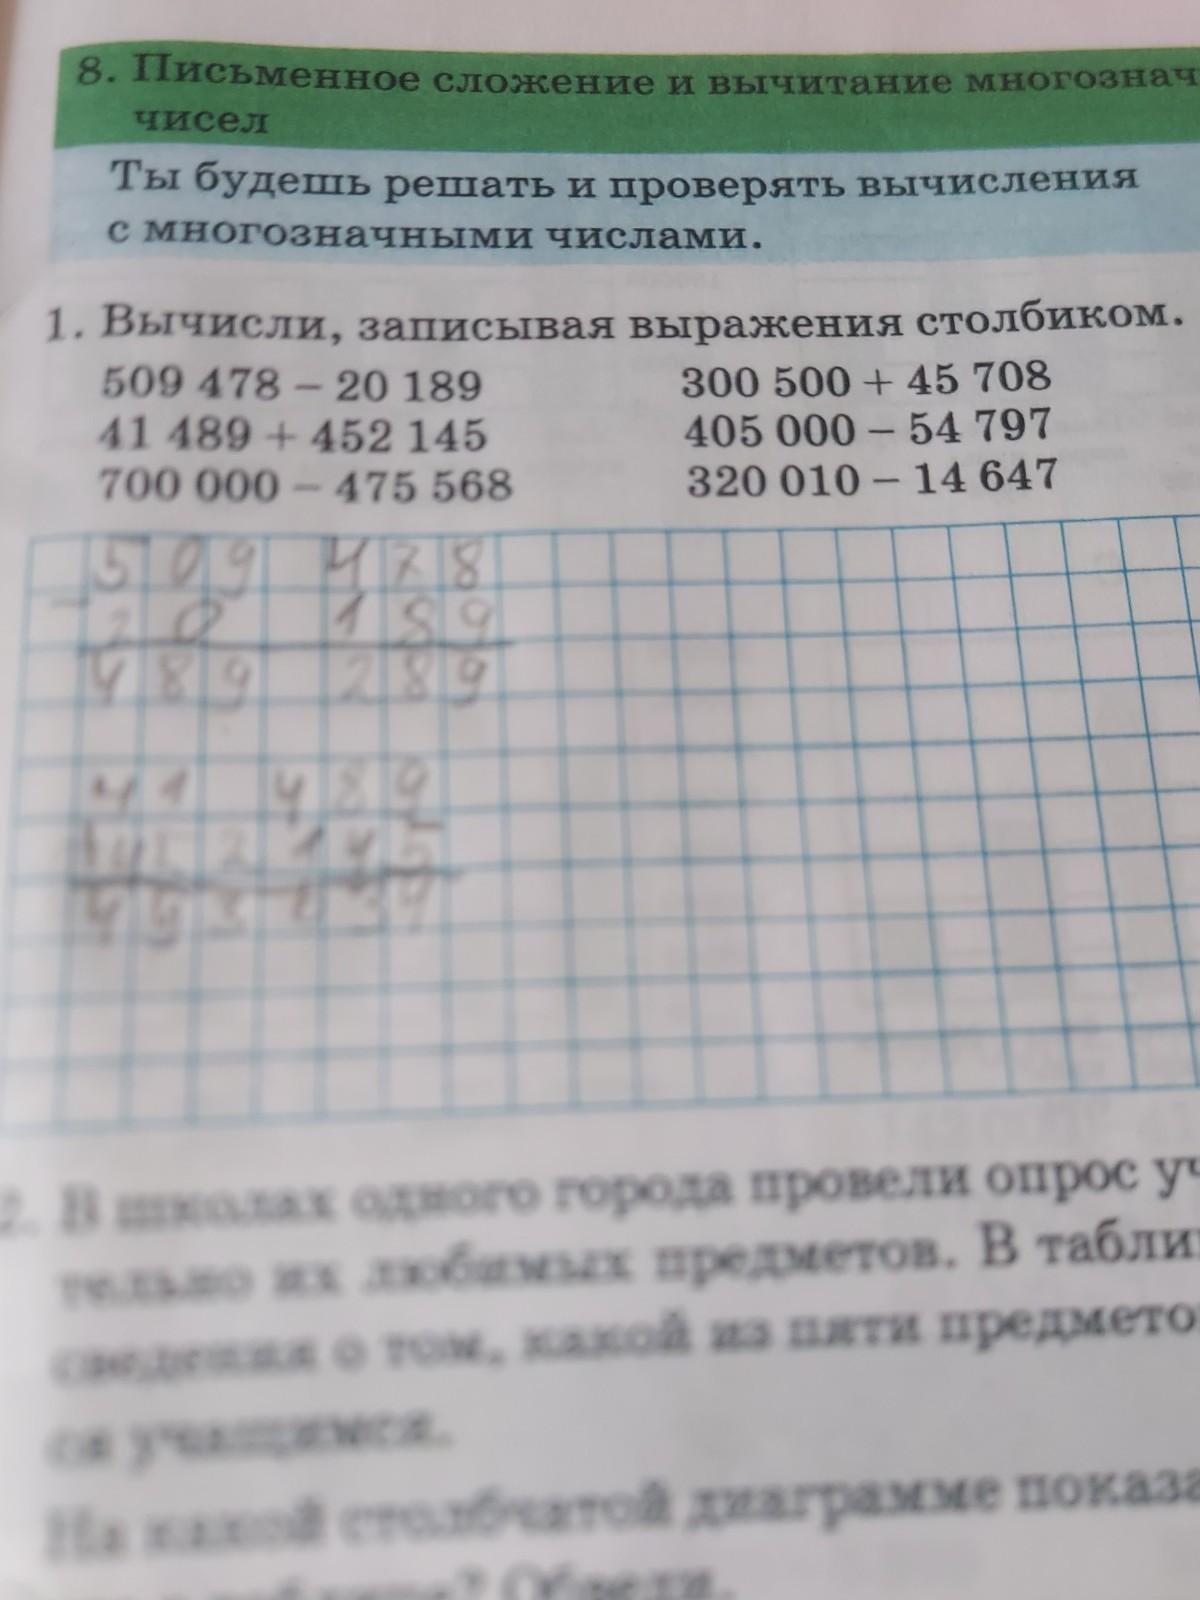 8. Письменное сложение и вычитание многознач
чисел
Ты будешь решать и проверять вычисления
с многозначными числами.
1. Вычисли, записывая выражения столбиком.
509 478 – 20 189 300 500 + 45 708
41 489 + 452 145 405 000 – 54 797
700 000 – 475 568 320 010 – 14 647
509 478
– 20 189
489 289
41 489
452145
2. В школах одного города провели опрос уч
тельно их любимых предметов. В табли
сведения о том, какой из пяти предмето
ся учащимся.
На какой столбчатой диаграмме показа
Обведи.